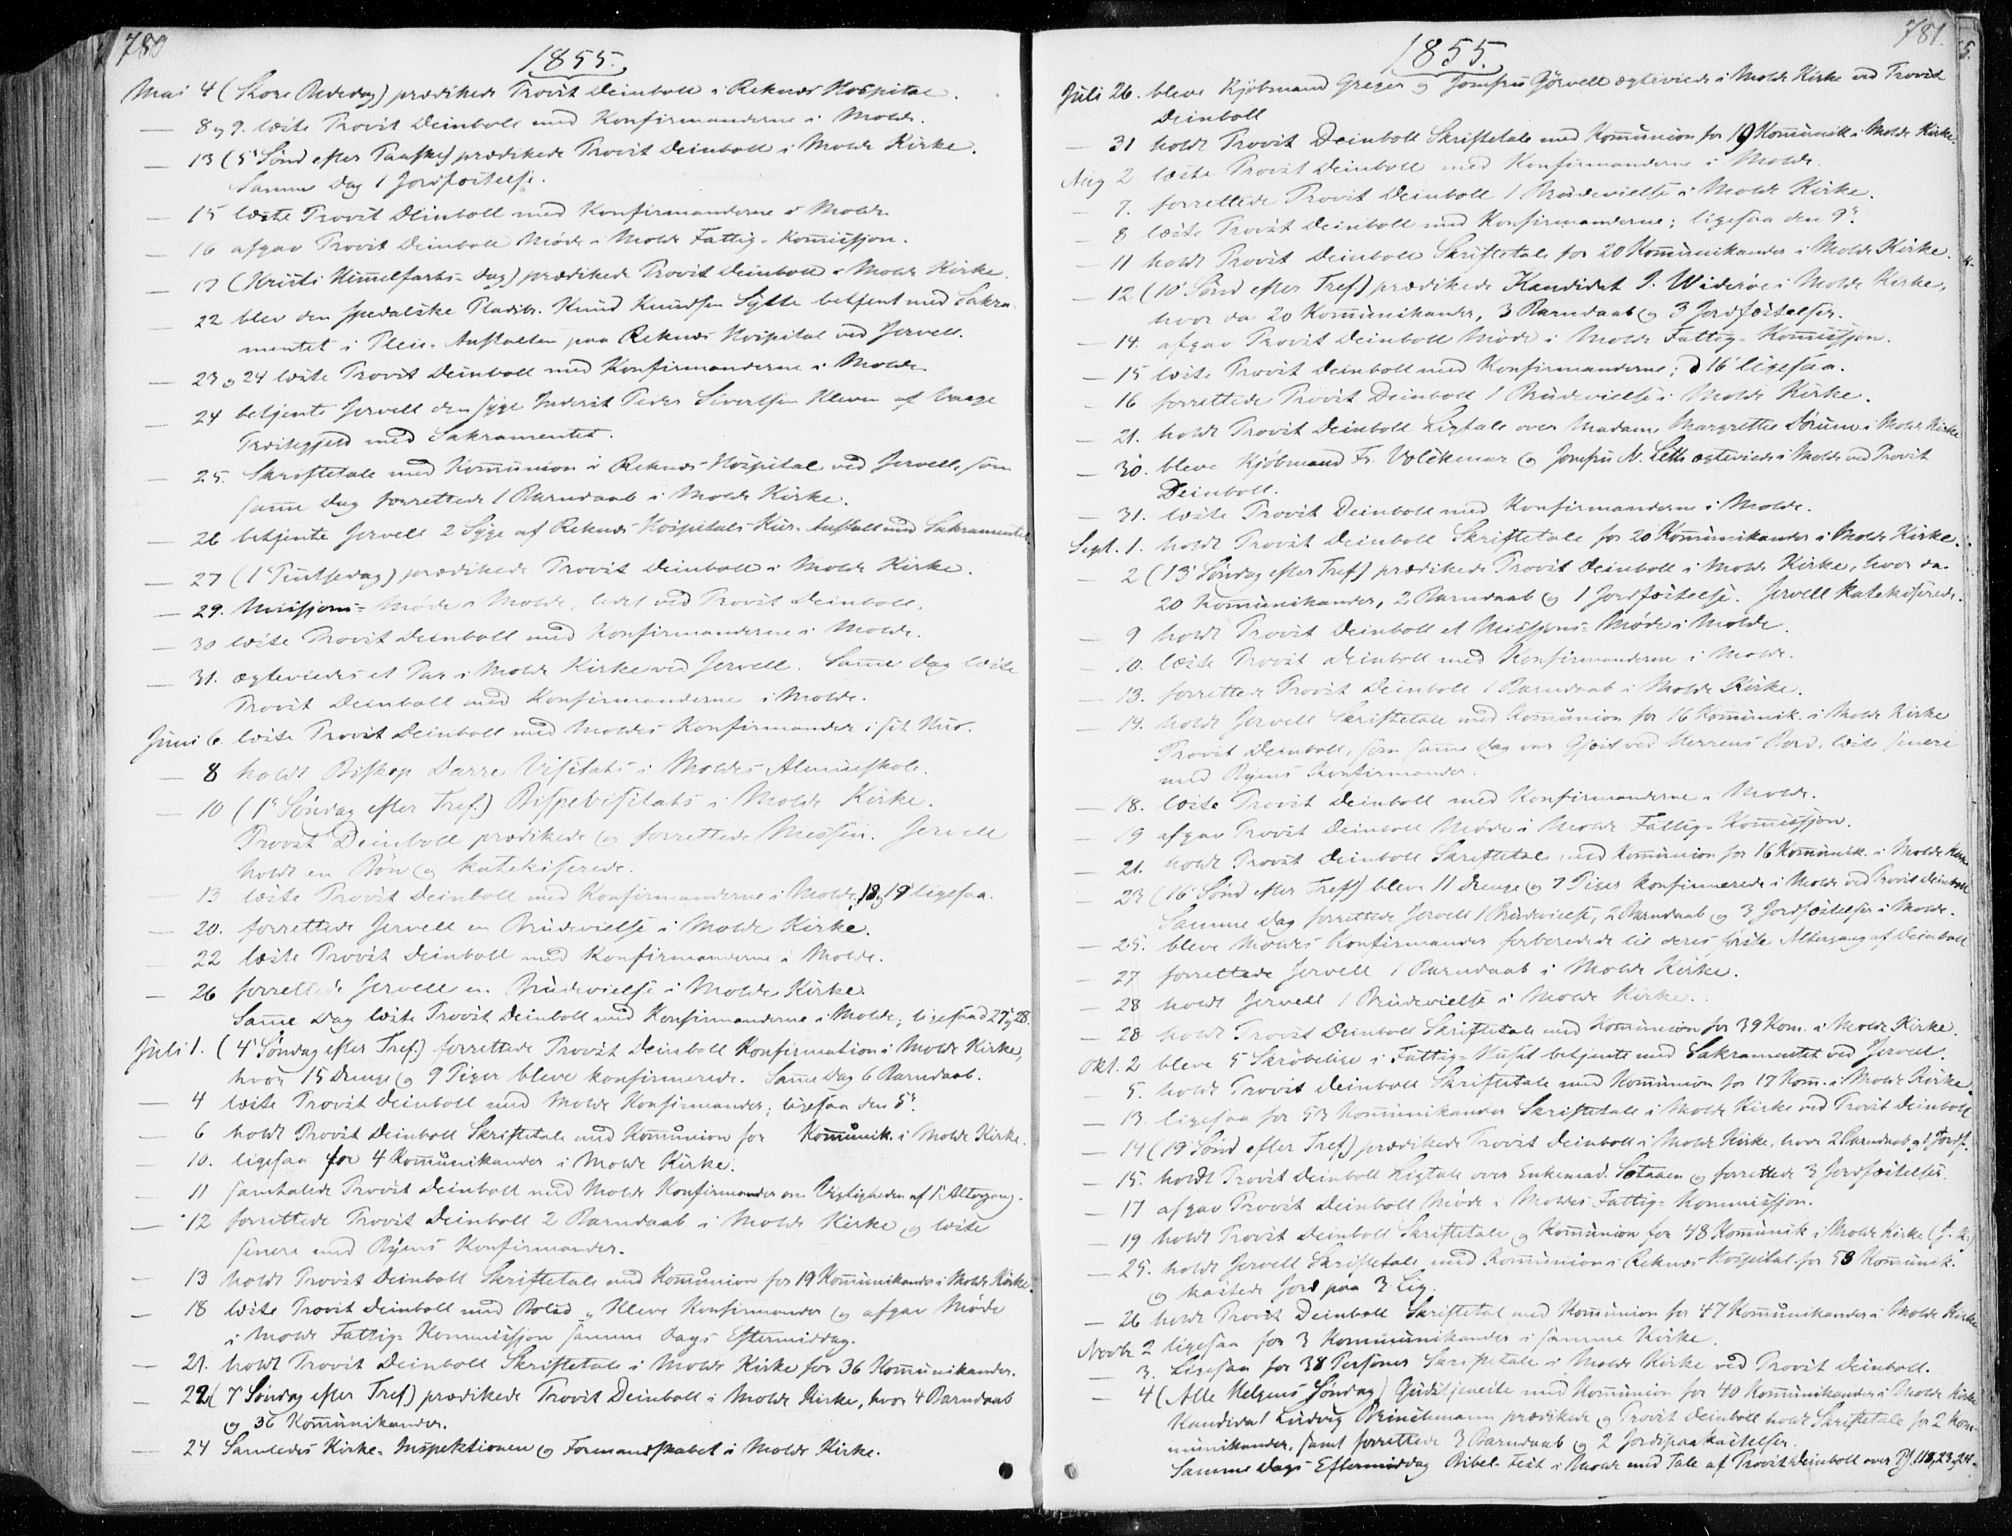 780
1855.
Mai 4 (Store Bededag) prædikede Provst Deinboll i Reknes Hospital.
— 8 og 9. læste Provst Deinboll med Konfirmanderne i Molde.
— 13 (5' Sønd efter Paaske) prædikede Provst Deinboll i Molde Kirke.
Samme Dag 1 Jordfæstelse.
— 15 læste Provst Deinboll med Konfirmanderne i Molde.
— 16 afgav Provst Deinboll Møde i Molde Fattig-Kommissjon.
— 17 (Kristi Himmelfarts-dag) prædikede Provst Deinboll i Molde Kirke.
— 22 blev den spedalske Pladsm. Knud Knudsen Sylte betjent med Sakra-
mentet i Pleie-Anstalten paa Reknes Hospital ved Jervell.
— 23 og 24 læste Provst Deinboll med Konfirmanderne i Molde.
— 24 betjente Jervell den syge Inderst Peder Sivertsen Kleven af Vaage
Præstegjeld med Sakramentet.
— 25. Skriftetale med Kommunion i Reknes-Hospital ved Jervell, som
samme Dag forrettede 1 Barndaab i Molde Kirke.
— 26 betjente Jervell 2 Syge af Reknes Hospitals Kur-Anstalt med Sakramentet.
— 27 (1' Pintsedag) prædikede Provst Deinboll i Molde Kirke.
— 29. Missjons-Møde i Molde, ledet ved Provst Deinboll.
— 30 læste Provst Deinboll med Konfirmanderne i Molde.
— 31. ægteviedes et Par i Molde Kirke ved Jervell. Samme Dag læste
Provst Deinboll med Konfirmanderne i Molde.
Juni 6. læste Provst Deinboll med Moldes Konfirmander i sit Hus.
— 8 holdt Biskop Darre Visitats i Moldes Almueskole.
— 10 (1' Søndag efter Tref.) Bispevisitats i Molde Kirke.
Provst Deinboll prædikede og forrettede Messen. Jervell
holdt en Bøn og katekiserede.
— 13 læste Provst Deinboll med Konfirmanderne i Molde, 18 og 19' ligesaa.
— 20. forrettede Jervell en Brudevielse i Molde Kirke.
— 22 læste Provst Deinboll med Konfirmanderne i Molde.
— 26 forrettede Jervell en Brudevielse i Molde Kirke.
Samme Dag læste Provst Deinboll med Konfirmanderne i Molde; ligesaa d 27 og 28.
Juli 1. (4' Søndag efter Tref.) forrettede Provst Deinboll Konfirmation i Molde Kirke,
hvor 15 Drenge og 9 Piger bleve konfirmerede. Samme Dag 6 Barndaab.
— 4 læste Provst Deinboll med Molde Konfirmander; ligesaa den 5'.
— 6 holdt Provst Deinboll Skriftetale med Kommunion for Kommunik. i Molde Kirke.
— 10. ligesaa for 4 Kommunikander i Molde Kirke.
— 11 samtalede Provst Deinboll med Molde Konfirmander om Vigtigheden af 1' Altergang.
— 12 forrettede Provst Deinboll 2 Barndaab i Molde Kirke og læste
senere med Byens Konfirmander.
— 13 holdt Provst Deinboll Skriftetale med Kommunion for 19 Kommunikander i Molde Kirke.
— 18 læste Provst Deinboll med Bolsø og Kleve Konfirmander og afgav Møde
i Molde Fattig-Kommissjon samme Dags Eftermiddag.
— 21. holdt Provst Deinboll Skriftetale i Molde Kirke for 36 Kommunikander.
— 22 (7' Søndag efter Tref) prædikede Provst Deinboll i Molde Kirke, hvor 4 Barndaab
og 36 Kommunikander.
— 24 Samledes Kirke-Inspektionen og Formandskabet i Molde Kirke.
781.
1855.
Juli 26. bleve Kjøbmand Greger og Jomfru Gørvell ægteviede i Molde Kirke ved Provst
Deinboll
— 31 holdt Provst Deinboll Skriftetale med Kommunion for 19 Kommunik. i Molde Kirke.
Aug 2 læste Provst Deinboll med Konfirmanderne i Molde.
— 7. forrettede Provst Deinboll 1 Brudevielse i Molde Kirke.
— 8 læste Provst Deinboll med Konfirmanderne; ligesaa den 9'.
— 11 holdt Provst Deinboll Skriftetale for 20 Kommunikander i Molde Kirke.
— 12 (10' Sønd efter Tref) prædikede Kandidat J. Widerøe i Molde Kirke,
hvor da 20 Kommunikander, 3 Barndaab og 3 Jordfæstelser.
— 14. afgav Provst Deinboll Møde i Molde Fattig-Kommissjon.
— 15 læste Provst Deinboll med Konfirmanderne; d 16' ligesaa.
— 16 forrettede Provst Deinboll 1 Brudevielse i Molde Kirke.
— 21. holdt Provst Deinboll Ligtale over Madame Margrethe Dørum i Molde Kirke
— 30. bleve Kjøbmand Fr. Volckmar og Jomfru N. Leth ægteviede i Molde ved Provst
Deinboll.
— 31. læste Provst Deinboll med Konfirmanderne i Molde.
Sept. 1. holdt Provst Deinboll Skriftetale for 20 Kommunikander i Molde Kirke.
— 2 (13' Søndag efter Tref) prædikede Provst Deinboll i Molde Kirke, hvor da
20 Kommunikander, 2 Barndaab og 1 Jordfæstelse. Jervell katekiserede.
— 9 holdt Provst Deinboll et Missjons-Møde i Molde.
— 10. læste Provst Deinboll med Konfirmanderne i Molde.
— 13. forrettede Provst Deinboll 1 Barndaab i Molde Kirke.
— 14. holdt Jervell Skriftetale med Kommunion for 16 Kommunik. i Molde Kirke
Provst Deinboll, som samme Dag var Gjæst ved Herrens Bord, læste senere
med Byens Konfirmander.
— 18. læste Provst Deinboll med Konfirmanderne i Molde.
— 19 afgav Provst Deinboll Møde i Molde Fattig-Kommissjon.
— 21. holdt Provst Deinboll Skriftetale med Kommunion for 16 Kommunik. i Molde Kirke
— 23 (16' Sønd efter Tref) bleve 11 Drenge og 7 Piger konfirmerede i Molde ved Provst Deinboll
Samme Dag forrettede Jervell 1 Brudevielse, 2 Barndaab og 3 Jordfæstelser i Molde.
— 25. bleve Moldes Konfirmander forberedede til deres første Altergang af Deinboll
— 27 forrettede Jervell 1 Barndaab i Molde Kirke.
— 28 holdt Jervell 1 Brudevielse i Molde Kirke.
— 28 holdt Provst Deinboll Skriftetale med Kommunion for 39 Kom. i Molde Kirke.
Okt. 2 bleve 5 Skrøbelige i Fattig-Huset betjente med Sakramentet ved Jervell.
— 5. holdt Provst Deinboll Skriftetale med Kommunion for 17 Kom. i Molde Kirke.
— 13. ligesaa for 53 Kommunikander Skriftetale i Molde Kirke ved Provst Deinboll
— 14 (19' Sønd efter Tref) prædikede Provst Deinboll i Molde Kirke, hvor 2 Barndaab og 1 Jordf.
— 15. holdt Provst Deinboll Ligtale over Enkemad. Sotaaen og forrettede 3 Jordfæstelser.
— 17 afgav Provst Deinboll Møde i Moldes Fattig-Kommissjon.
— 19 holdt Provst Deinboll Skriftetale og Kommunion for 48 Kommunik. i Molde Kirke
— 25. holdt Jervell Skriftetale med Kommunion i Reknes-Hospital for 58 Kommunik.
og kastede Jord paa 3 Lig.
— 26 holdt Provst Deinboll Skriftetale med Kommunion for 47 Kommunikander i Molde Kirke
Novbr 2 ligesaa for 3 Kommunikander i samme Kirke.
— 3. Ligesaa for 38 Personer Skriftetale i Molde Kirke ved Provst Deinboll.
— 4 (Alle Helgens Søndag) Gudstjeneste med Kommunion for 40 Kommunikander i Molde Kirke
Kandidat Ludvig Brinchmann prædikede og Provst Deinboll holdt Skriftetale for 2 Kom-
munikander, samt forrettede 3 Barndaab og 2 Jordpaakastelser.
Samme Dags Eftermiddag Bibel-Fest i Molde med Tale af Provst Deinboll over Ps. 118, 23, 24.